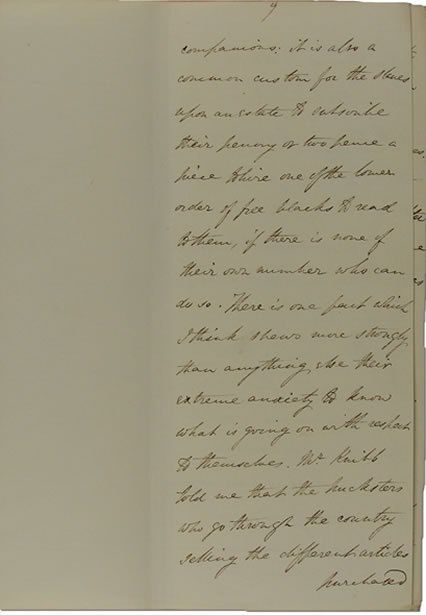 9
companions; it is also a
common custom for the slaves
upon an estate to subscribe
their penny or two pence a
piece to hire one of the lower
order of free blacks to read
to them, if there is none of
their own number who can
do so. There is one fact which
I think shews more strongly
than anything else their
extreme anxiety to know
what is going on with respect
to themselves. Mr. Knibb
told me that the hucksters
who go through the country
selling the different articles
purchased